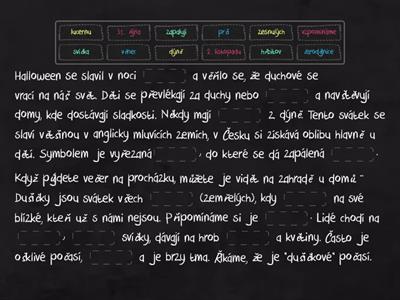 lucernu 31. října zapalují prší zesnulých vzpomínáme
svíčka věnec dýně 2. listopadu hřbitov čarodějnice
Halloween se slavil v noci a věřilo se, že duchové se
vrací na náš svět. Děti se převlékají za duchy nebo a navštěvují
domy, kde dostávají sladkosti. Někdy mají z dýně. Tento svátek se
slaví většinou v anglicky mluvících zemích, v Česku si získává oblibu hlavně u
dětí. Symbolem je vyřezaná , do které se dá zapálená .
Když půjdete večer na procházku, můžete je vidět na zahradě u domů
Dušičky jsou svátek všech (zemřelých), kdy na své
blízké, kteří už s námi nejsou. Připomínáme si je . Lidé chodí na
, svíčky, dávají na hrob a květiny. Často je
ošklivé počasí, a je brzy tma. Říkáme, že je "dušičkové" počasí.